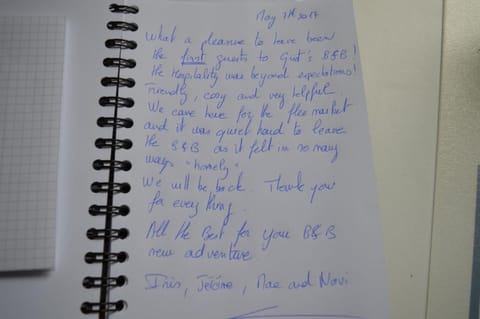 May 7th 2017
What a pleasure to have been
the first guests to Gust's B&B!
the hospitality was beyond expectations!
Friendly, cosy and very helpful.
We came here for the flea market
and it was quiet hard to leave
the B&B as it felt in so many
ways "homely"
We will be back. Thank you
for every thing.
All the Best for your B&B
new adventure
Iris, Jérôme, Mae and Novi